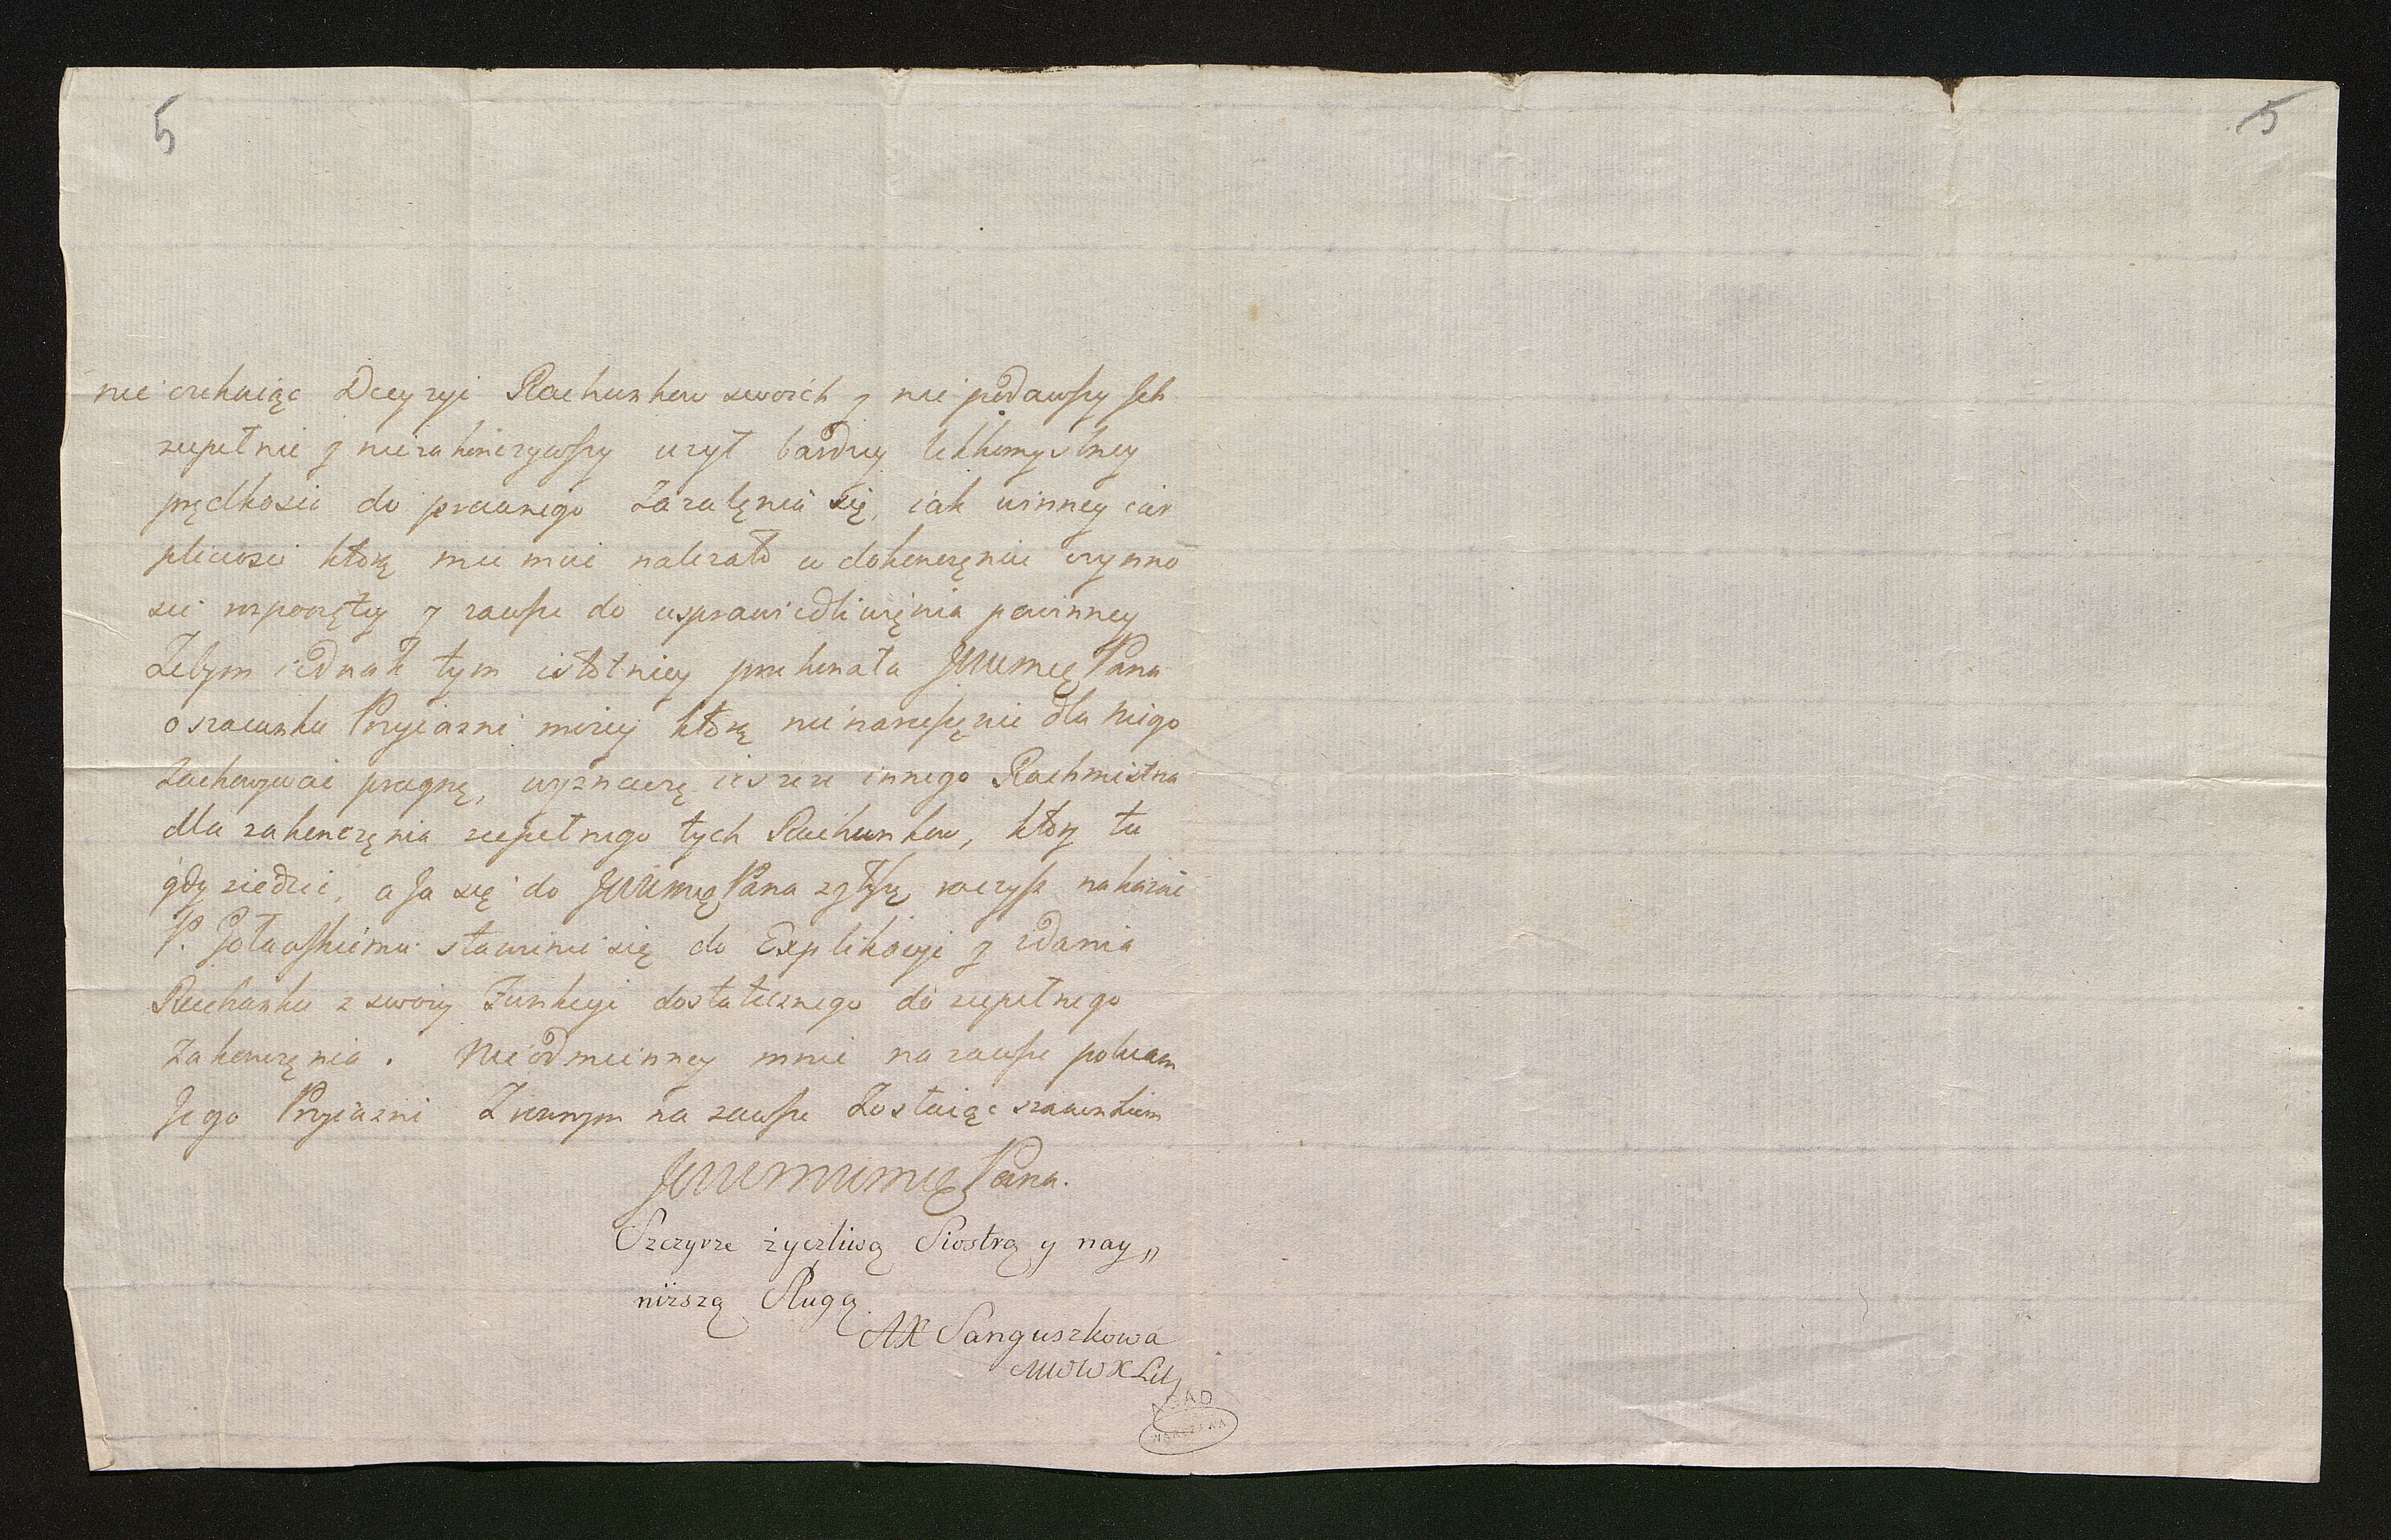 5
5
nie czekaiąc Decyzyi Rachunkow swoich y nie podawszy Ich
zupełnie y niezakonczywszy uzył bardziey lekkomyslney
prędkosci do prawnego Zazalęnia się, iak winney cier
pliwosci ktorą mu miec nalezało w dokonczęniu czynno
sci rozpoczętey y zawsze do usprawiedliwięnia powinney
Zebym iednak tym istotniey przekonała JWWmę Pana
o szacunku Przyiazni moiey ktorą nienaruszęnie dla Niego
Zachowywac pragnę, wyznaczę ieszcze innego Rachmistrza
dla zakonczęnia zupełnego tych Rachunkow, ktory tu
gdy ziedzie, a Ja się do JWWmę Pana zgłoszę, raczysz nakazac
P. Goławskiemu stawienie się do Explikacyi y zdania
Rachunku z swoiey Funkcyi dostatecznego do zupełnego
Zakonczęnia. Nieodmienney mnie na zawsze polecam
Jego Przyiazni Z rownym na zawsze Zostaiąc szacunkiem
Pana.
Szczyrze życzliwą Siostrą y nay„
niższą Sługą
AX Sanguszkowa
MWWXLit
AGAD
WARSZAWA